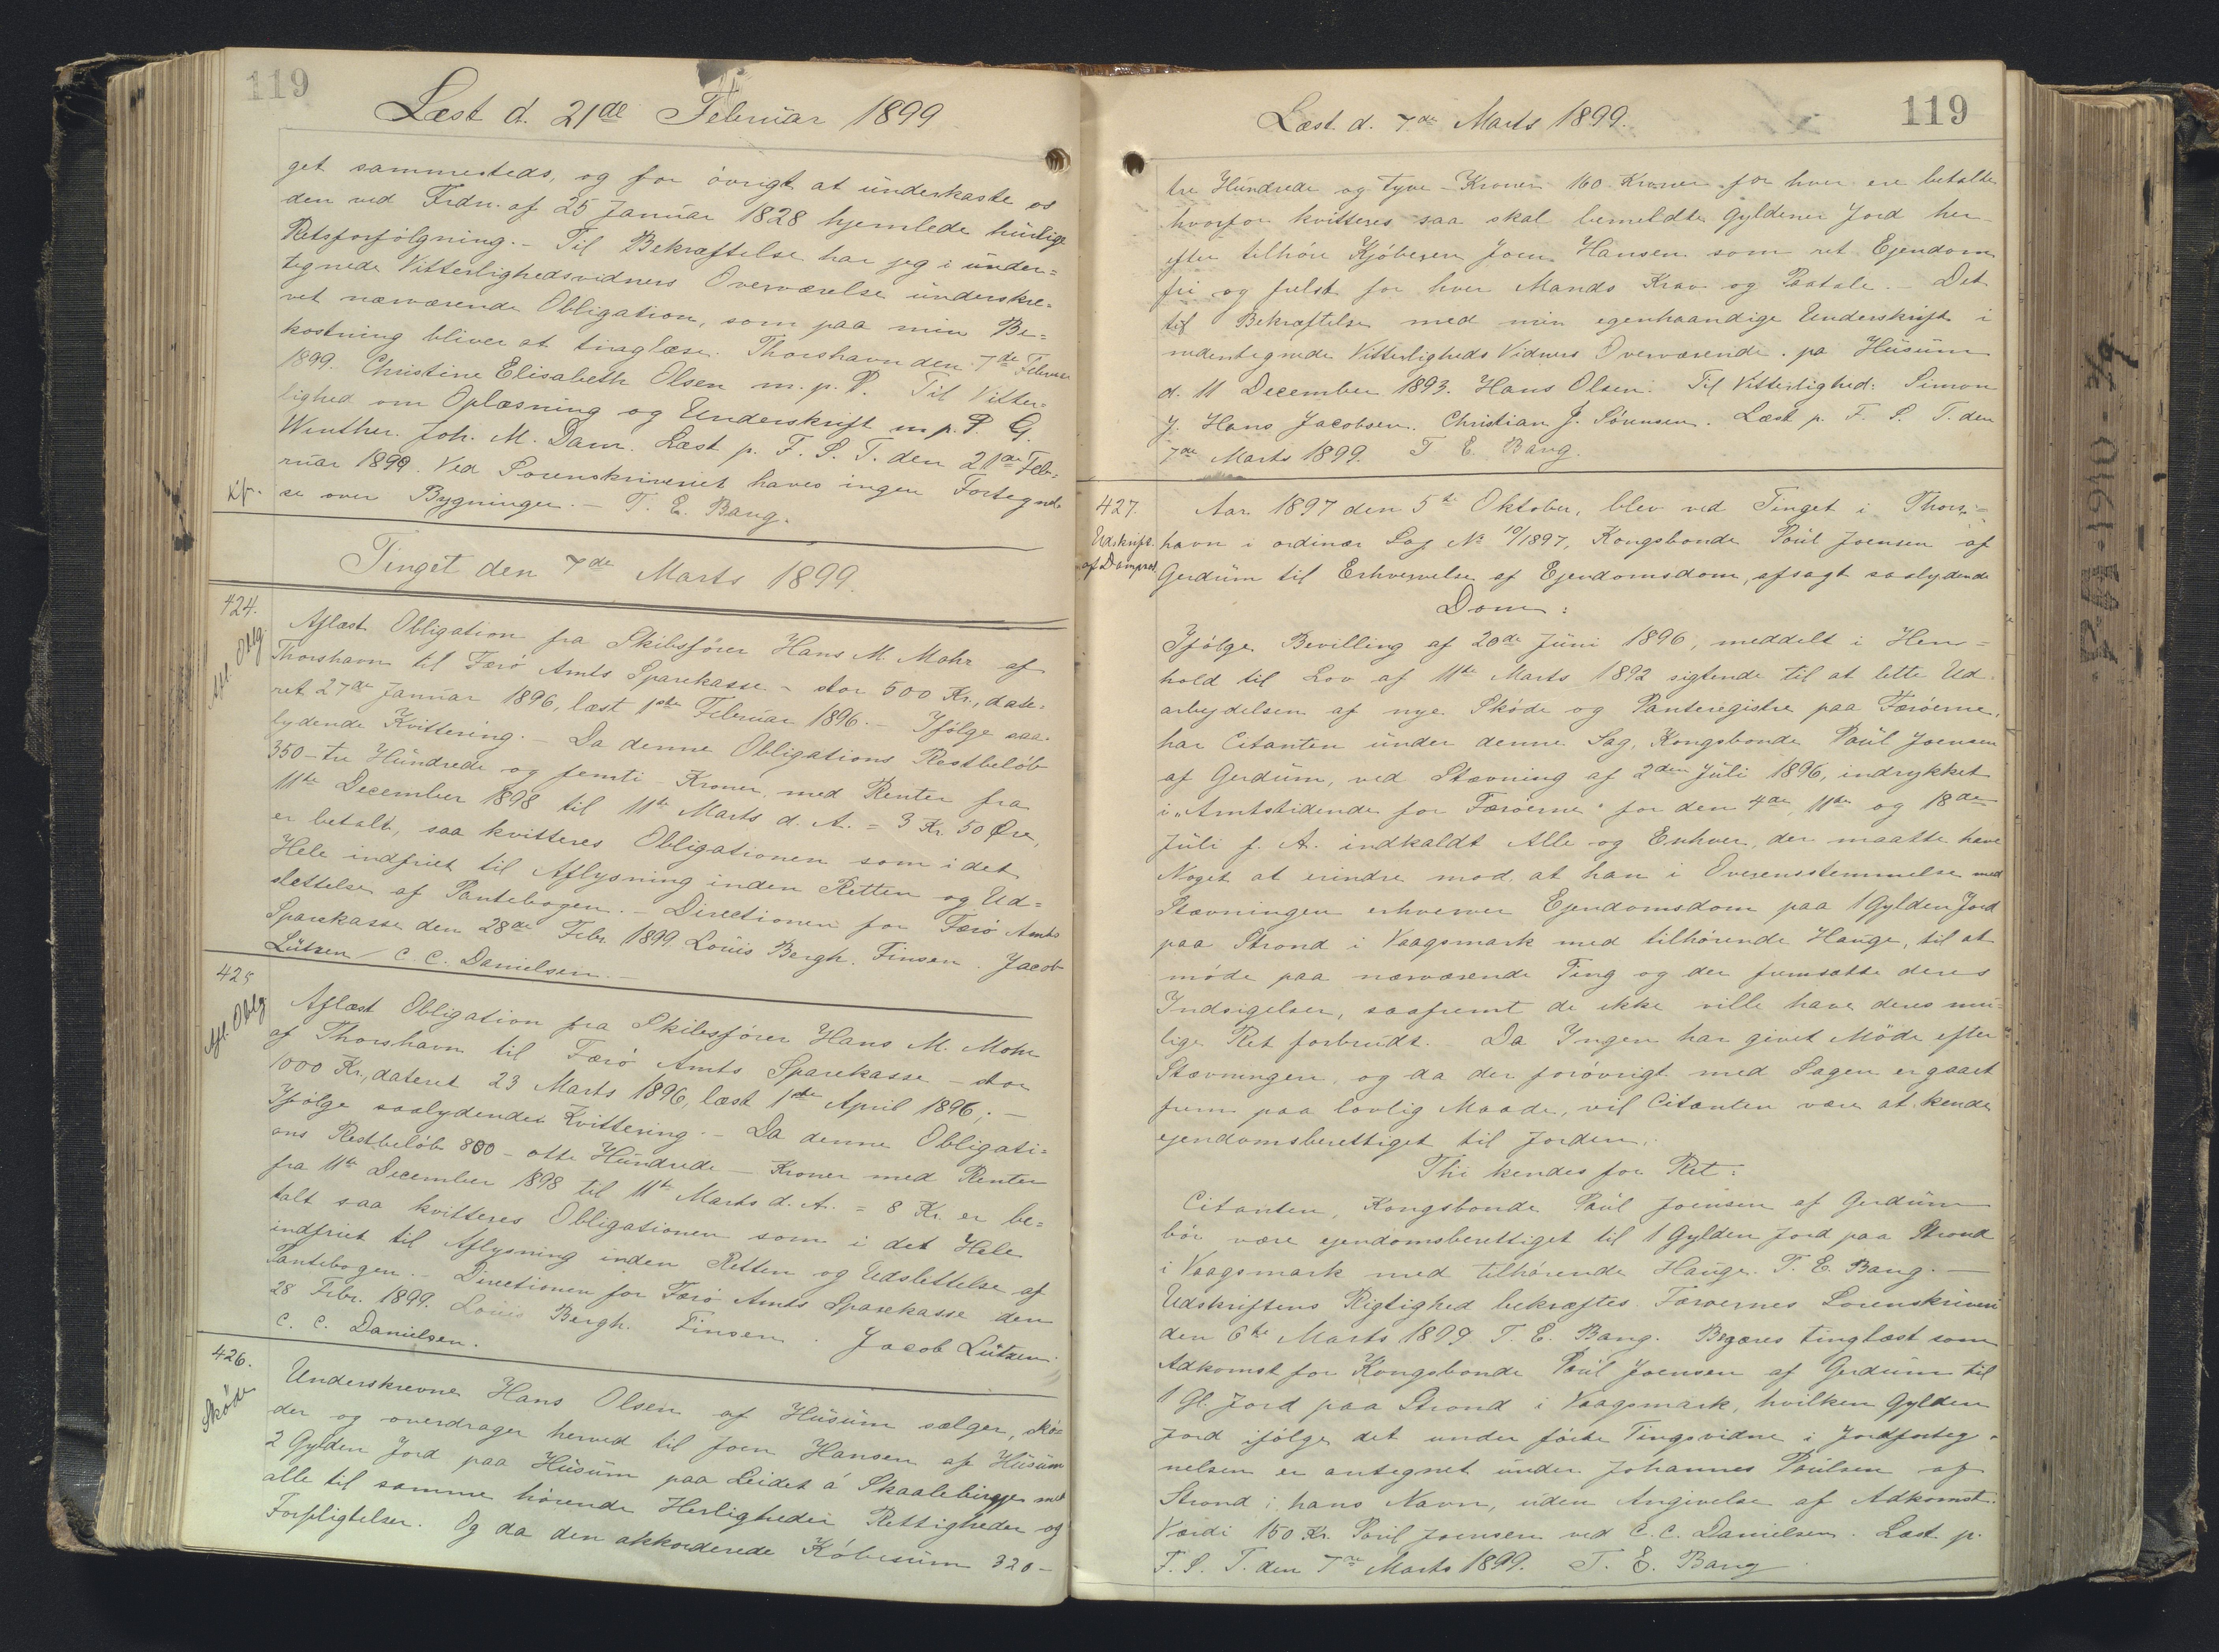 119
Læst d. 21de Februar 1899
get sammesteds, og for övrigt at underkaste os
den ved Frdn. af 25 Januar 1828 hjemlede hurtige
Retsforfölgning. – Til Bekræftelse har jeg i under=
tegnede Vitterlighedsvidners Overværelse underskre=
vet nærværende Obligation, som paa min Be=
kostning bliver at tinglæse. Thorshavn den 7de Februar
1899. Christine Elisabeth Olsen m. p. P. Til Vitter=
lighed om Oplæsning og Underskrift m. p. P. G.
Winther. Joh. M. Dam. Læst p. F. S. T. den 21de Feb=
ruar 1899. Ved Sorenskriveriet haves ingen Fortegnel=
se over Bygninger. – T. E. Bang.
Tinget den 7de Marts 1899.
424.
Afl. Oblg
Aflæst Obligation fra Skibsfører Hans M. Mohr af
Thorshavn til Færö Amts Sparekasse – stor 500 Kr., date=
ret 27de Januar 1896, læst 1ste Februar 1896. – Ifölge saa=
lydende Kvittering. – Da denne Obligations Restbelöb
350 – tre Hundrede og femti – Kroner, med Renter fra
11te December 1898 til 11te Marts d. A. = 3 Kr. 50 Øre,
er betalt, saa kvitteres Obligationen som i det
Hele indfriet til Aflysning inden Retten og Ud=
slettelse af Pantebogen. – Directionen for Færö Amts
Sparekasse den 28de Febr. 1899. Louis Bergh. Finsen. Jacob
Lützen / C. C. Danielsen. –
425
Afl. Oblg
Aflæst Obligation fra Skibsfører Hans M. Mohr
af Thorshavn til Færö Amts Sparekasse – stor
1000 Kr., dateret 23 Marts 1896, læst 1ste April 1896; –
Ifölge saalydende Kvittering. – Da denne Obligati=
ons Restbelöb 800 – otte Hundrede – Kroner med Renter
fra 11te December 1898 til 11te Marts d. A. = 8 Kr. er be=
talt saa kvitteres Obligationen som i det Hele
indfriet til Aflysning inden Retten og Udslettelse af
Pantebogen. – Directionen for Færö Amts Sparekasse den
28 Febr. 1899. Louis Bergh. Finsen. Jacob Lützen.
C. C. Danielsen.
426.
Sköde
Underskrevne Hans Olsen af Husum sælger, skö=
der og overdrager herved til Joen Hansen af Husum
2 Gylden Jord paa Husum paa Leidet á Skaalebirgge med
alle til samme hörende Herligheder Rettigheder og
Forpligtelser. Og da den akkorderede Köbesum 320 –
Læst d. 7de Marts 1899.
119
tre Hundrede og tyve – Kroner 160 Kroner for hver ere betalte
hvorfor kvitteres saa skal bemeldte Gyldener Jord her-
efter tilhöre Kjöberen Joen Hansen som ret Ejendom
fri og frelst for hver Mands Krav og Paatale. – Det
til Bekræftelse med min egenhaandige Underskrift i
nedentegnede Vitterligheds Vidners Overværende. pa Husum
d. 11 December 1893. Hans Olsen. Til Vitterlighed: Simon
J. Hans Jacobsen. Christian J. Sörensen. Læst p. F. S. T. den
7de Marts 1899. T E. Bang.
427.
Udskrift
af Domprot.
Aar 1897 den 5te Oktober, blev ved Tinget i Thors=
havn i ordinær Sag No 10/1897, Kongsbonde Poul Joensen af
Gerdum til Erhvervelse af Ejendomsdom, afsagt saalydende
Dom:
Ifölge Bevilling af 20de Juni 1896, meddelt i Hen=
hold til Lov af 11te Marts 1892 sigtende til at lette Ud-
arbejdelsen af nye Sköde og Panteregistre paa Færöerne,
har Citanten under denne Sag, Kongsbonde Poul Joensen
af Gerdum, ved Stævning af 2den Juli 1896, indrykket
i "Amtstidende for Færöerne" for den 4de, 11te og 18de
Juli f. A. indkaldt Alle og Enhver, der maatte have
Noget at erindre mod, at han i Overensstemmelse med
Stævningen erhverver Ejendomsdom paa 1 Gylden Jord
paa Strond i Vaagsmark med tilhörende Hauge, til at
möde paa nærværende Ting og der fremsætte deres
Indsigelser, saafremt de ikke ville have deres mu=
lige Ret forbrudt. – Da Ingen har givet Möde efter
Stævningen, og da der forövrigt med Sagen er gaaet
frem paa lovlig Maade, vil Citanten være at kende
ejendomsberettiget til Jorden.
Thi kendes for Ret:
Citanten, Kongsbonde Poul Joensen af Gerdum
bör være ejendomsberettiget til 1 Gylden Jord paa Strond
i Vaagsmark med tilhörende Hauge. T. E. Bang. –
Udskriftens Rigtighed bekræftes. Færoernes Sorenskriveri
den 6te Marts 1899. T. E. Bang. Begæres tinglæst som
Adkomst for Kongsbonde Poul Joensen af Gerdum til
1 Gl. Jord paa Strond i Vaagsmark, hvilken Gylden
Jord ifölge det under förte Tingsvidne i Jordforteg=
nelsen er antegnet under Johannes Poulsen af
Strond i hans Navn, uden Angivelse af Adkomst.
Værdi 150 Kr. Poul Joensen ved C. C. Danielsen. Læst p.
F. S. T. den 7de Marts 1899. T. E. Bang